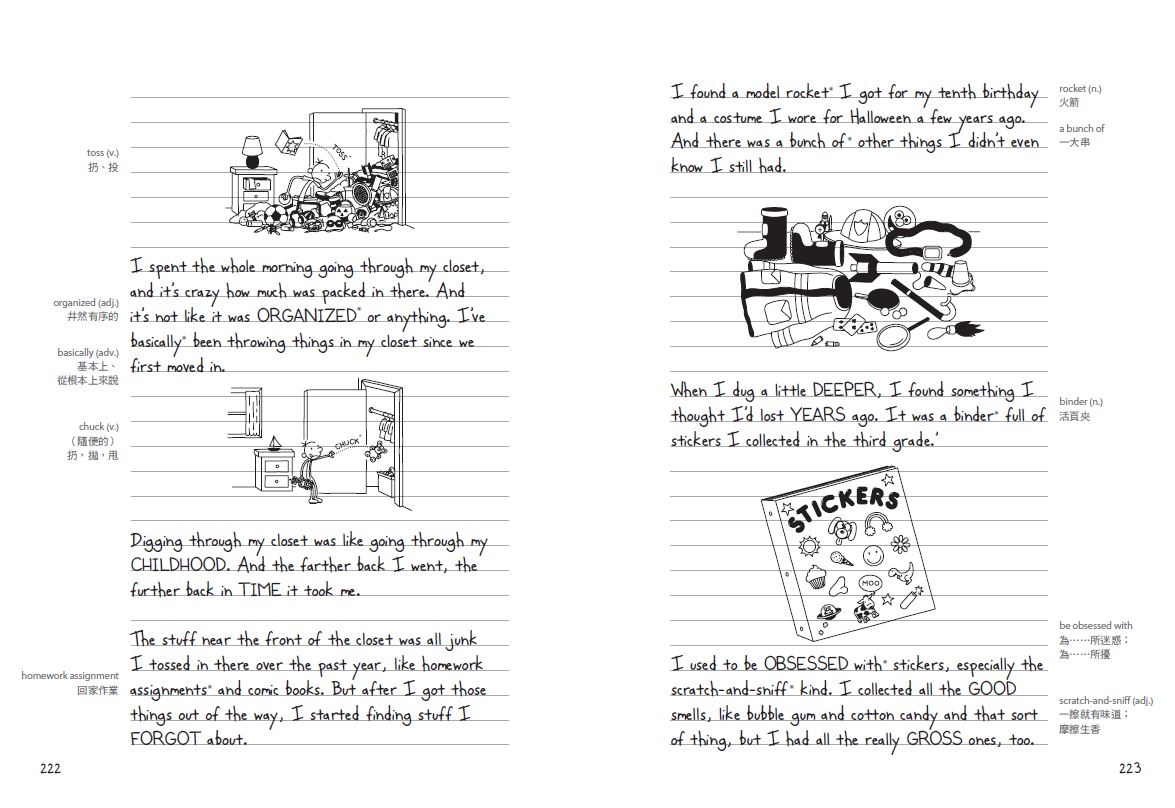 toss (v.)
扔、投
TOSS*
I spent the whole morning going through my closet,
and it's crazy how much was packed in there. And
it's not like it was ORGANIZED* or anything. I've
basically* been throwing things in my closet since we
first moved in.
organized (adj.)
井然有序的
basically (adv.)
基本上、
從根本上來說
chuck (v.)
（隨便的）
扔，拋，甩
CHUCK*
Digging through my closet was like going through my
CHILDHOOD. And the farther back I went, the
further back in TIME it took me.
The stuff near the front of the closet was all junk
I tossed in there over the past year, like homework
assignments* and comic books. But after I got those
things out of the way, I started finding stuff I
FORGOT about.
homework assignment
回家作業
222
I found a model rocket* I got for my tenth birthday
and a costume I wore for Halloween a few years ago.
And there was a bunch of* other things I didn't even
know I still had.
rocket (n.)
火箭
a bunch of
一大串
When I dug a little DEEPER, I found something I
thought I'd lost YEARS ago. It was a binder* full of
stickers I collected in the third grade.'
binder (n.)
活頁夾
STICKERS
MOO
I used to be OBSESSED with* stickers, especially the
scratch-and-sniff* kind. I collected all the GOOD
smells, like bubble gum and cotton candy and that sort
of thing, but I had all the really GROSS ones, too.
be obsessed with
為……所迷惑；
為……所擾
scratch-and-sniff (adj.)
一擦就有味道；
摩擦生香
223